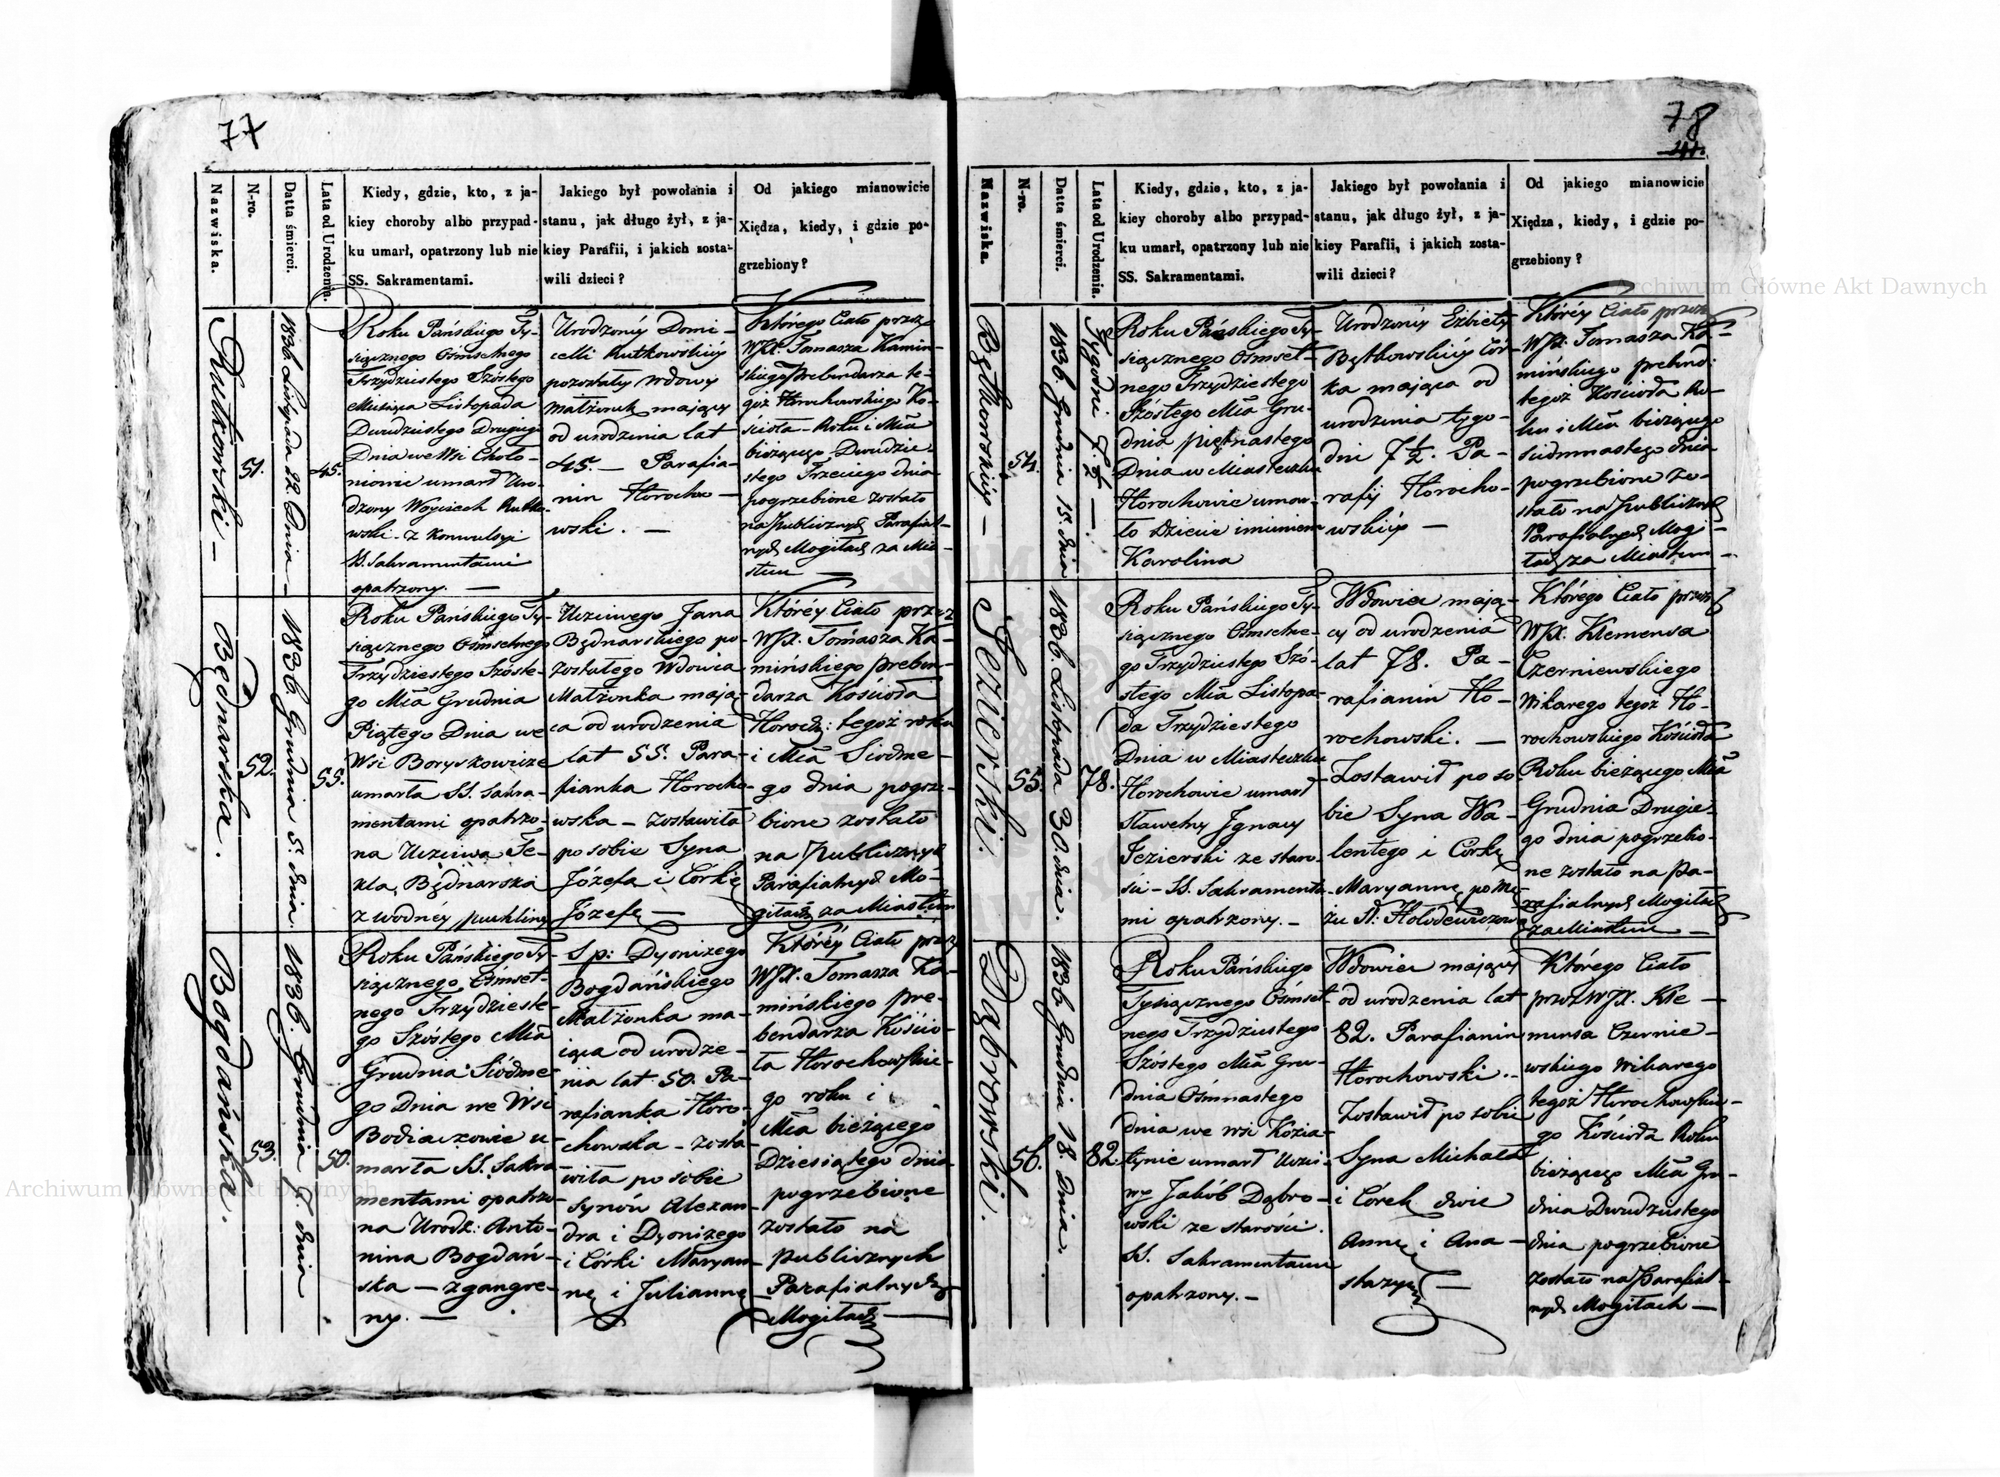 77
Nazwiska.
N-ro.
Datta śmierci.
Lata od Urodzenia.
Kiedy, gdzie, kto, z ja-
kiey choroby albo przypad-
ku umarł, opatrzony lub nie
SS. Sakramentami.
Jakiego był powołania i
stanu, jak długo żył, z ja-
kiey Parafii, i jakich zosta-
wili dzieci?
Od jakiego mianowicie
Xiędza, kiedy, i gdzie po-
grzebiony?
Rutkowski —
51.
1836. Listopada 22. Dnia —
45.
Roku Pańskiego Ty-
siącznego Ośmsetnego
Trzydziestego Szóstego
Miesiąca Listopada
Dwudziestego Drugiego
Dnia we Wsi Choło-
niowie umarł Uro-
dzony Woyciech Rutko-
wski z konwulsyi
SS. Sakramentami
opatrzony. —
Urodzonéy Domi-
celli Rutkowskiéy
pozostałey wdowy
Małżonek mający
od urodzenia lat
45. — Parafia-
nin Horocho-
wski. —
Którego Ciało przez
WJX. Tomasza Kamin-
skiego Prebendarza te-
goż Horochowskiego Ko-
ścioła — Roku i Mca
bieżącego Dwudzie-
stego Trzeciego dnia
pogrzebione zostało
na Publicznych Parafial-
nych Mogiłach za Mia-
stem —
Będnarska.
52.
1836. Grudnia 5. dnia.
55.
Roku Pańskiego Ty-
siącznego Ośmsetnego
Trzydziestego Szóste-
go Mca Grudnia
Piątego Dnia we
Wsi Boryskowicze
umarła SS. Sakra-
mentami opatrzo-
na Uczciwa Te-
kla Będnarska
z wodnéy puchliny
Uczciwego Jana
Będnarskiego po-
zostałego Wdowca
Małżonka mają-
ca od urodzenia
lat 55. Para-
fianka Horocho-
wska — zostawiła
po sobie Syna
Józefa i Córkę
Józefę —
Któréy Ciało przez
WJX. Tomasza Ka-
mińskiego Preben-
darza Kościoła
Horoch: tegoż roku
i Mca Siódme-
go dnia pogrze-
bione zostało
na Publicznych
Parafialnych Mo-
giłach za Miastem
Bogdańska.
53.
1836. Grudnia 7. dnia
50.
Roku Pańskiego Ty-
siącznego Ośmset-
nego Trzydzieste-
go Szóstego Mca
Grudnia Siódme-
go Dnia we Wsi
Bodiaczowie u-
marła SS. Sakra-
mentami opatrzo-
na Urodz: Anto-
nina Bogdań-
ska — z gangre-
ny. —
Sp: Dyonizego
Bogdańskiego
Małżonka ma-
iąca od urodze-
nia lat 50. Pa-
rafianka Horo-
chowska — zosta-
wiła po sobie
Synów Alexan-
dra i Dyonizego
i Córki Maryan-
nę i Juliannę
Któréy Ciało przez
WJX. Tomasza Ka-
mińskiego Pre-
bendarza Kościo-
ła Horochowskie-
go roku i
Mca bieżącego
Dziesiątego dnia
pogrzebione
zostało na
Publicznych
Parafialnych
Mogiłach —
78
Nazwiska.
N-ro.
Datta śmierci.
Lata od Urodzenia.
Kiedy, gdzie, kto, z ja-
kiey choroby albo przypad-
ku umarł, opatrzony lub nie
SS. Sakramentami.
Jakiego był powołania i
stanu, jak długo żył, z ja-
kiey Parafii, i jakich zosta-
wili dzieci?
Od jakiego mianowicie
Xiędza, kiedy, i gdzie po-
grzebiony?
Bętkowskiéy —
54.
1836. Grudnia 15. dnia
Tygodni 7 ½ —
Roku Pańskiego Ty-
siącznego Ośmset-
nego Trzydziestego
Szóstego Mca Gru-
dnia piętnastego
Dnia w Miasteczku
Horochowie umar-
ło Dziecie imieniem
Karolina
Urodzonéy Elżbiety
Bętkowskiéy Cór-
ka mająca od
urodzenia tygo-
dni 7 ½. Pa-
rafij Horocho-
wskiéy —
Któréy Ciało przez
WJX: Tomasza Ka-
mińskiego Prebend:
tegoż Kościoła Ro-
ku i Mca bieżącego
Siedmnastego dnia
pogrzebione zo-
stało na Publicznych
Parafialnych Mogi-
łach za Miastem —
Jezierski.
55.
1836. Listopada 30. dnia.
78.
Roku Pańskiego Ty-
siącznego Ośmsetne-
go Trzydziestego Szó-
stego Mca Listopa-
da Trzydziestego
Dnia w Miasteczku
Horochowie umarł
Sławetny Ignacy
Jezierski ze staro-
ści — SS. Sakramenta-
mi opatrzony. —
Wdowiec mają-
cy od urodzenia
lat 78. Pa-
rafianin Ho-
rochowski. —
Zostawił po so-
bie Syna Wa-
lentego i Córkę
Maryannę po Mę-
żu
Którego Ciało przez
WJX. Klemensa
Czerniewskiego
Wikarego tegoż Ho-
rochowskiego Kościoła
Roku bieżącego Mca
Grudnia Drugie-
go dnia pogrzebio-
ne zostało na Pa-
rafialnych Mogiłach
za Miastem —
Dąbrowski.
56.
1836 Grudnia 18 dnia.
82.
Roku Pańskiego
Tysiącznego Ośmset-
nego Trzydziestego
Szóstego Mca Gru-
dnia Ośmnastego
dnia we wsi Kozia-
tynie umarł Uczci-
wy Jakób Dąbro-
wski ze starości
SS. Sakramentami
opatrzony. —
Wdowiec mający
od urodzenia lat
82. Parafianin
Horochowski. —
Zostawił po sobie
Syna Michała
i Córek dwie
Annę i Ana-
stazyę —
Którego Ciało
przez WJX. Kle-
mensa Czernie-
wskiego Wikarego
tegoż Horochowskie-
go Kościoła Roku
bieżącego Mca Gru-
dnia Dwudziestego
dnia pogrzebione
zostało na Parafial-
nych Mogiłach —
Archiwum Główne Akt Dawnych
Archiwum Główne Akt Dawnych